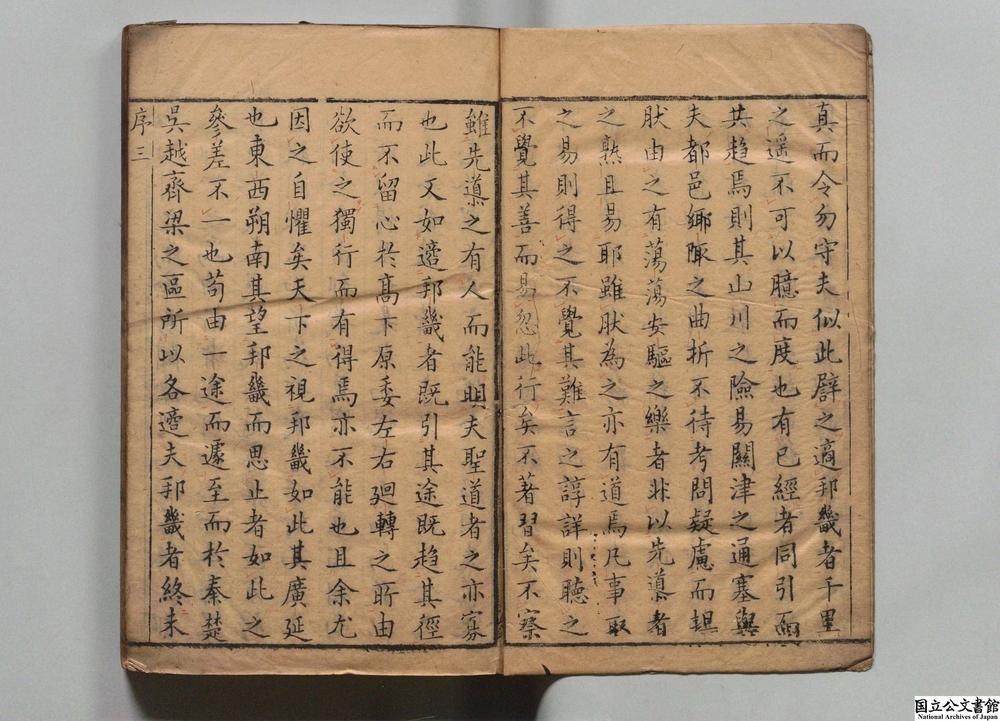 真而令勿守夫似此辟之適邦畿者千里
之遥不可以臆而度也有已經者同引而
共趋焉則其山川之險易關津之通塞與
夫都邑鄉陬之曲折不待考問疑慮而坦
肰由之有蕩蕩安驅之樂者非以先導者
之熟且易耶雖肰為之亦有道焉凡事取
之易則得之不覺其難言之諄詳則聽之
不覺其善而易忽此行矣不著習矣不察
雖先導之有人而能明夫聖道者之亦寡
也此又如適邦畿者既引其途既趋其徑
而不留心於高下原委左右廻轉之所由
欲使之獨行而有得焉亦不能也且余尤
因之自懼矣天下之視邦畿如此其廣延
也東西朔南其望邦畿而思止者如此之
參差不一也苟由一途而遽至而於秦楚
吳越齊梁之區所以各適夫邦畿者終未
序三
国立公文書館
National Archives of Japan